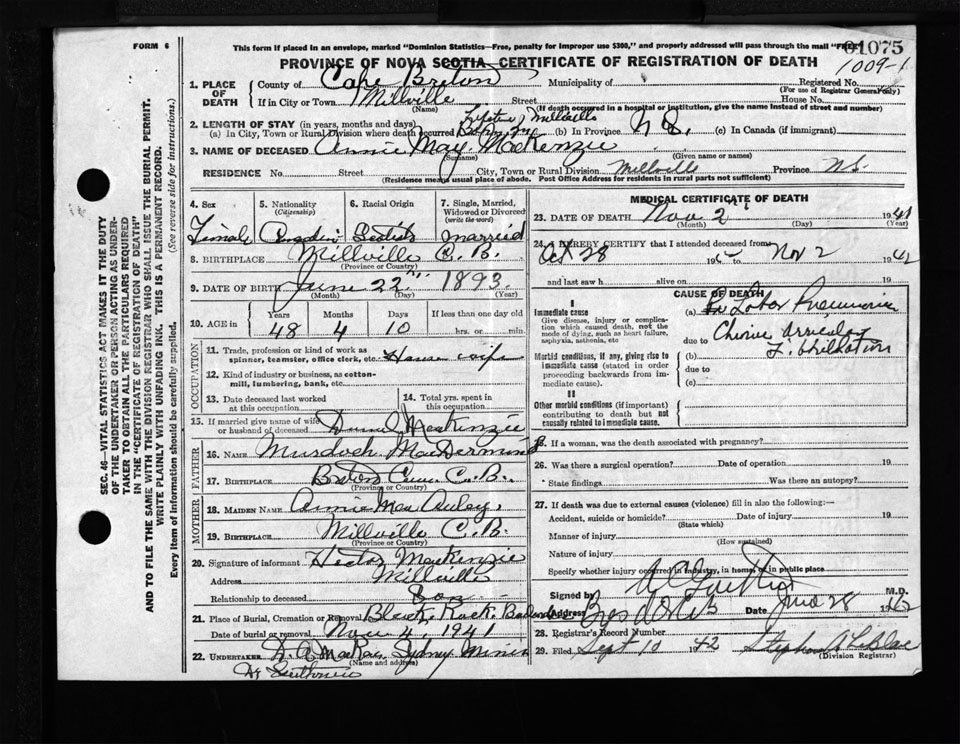 FORM 6
This form if placed in an envelope, marked "Dominion Statistics—Free, penalty for improper use $300," and properly addressed will pass through the mail "FREE"
01075
1009-1
PROVINCE OF NOVA SCOTIA—CERTIFICATE OF REGISTRATION OF DEATH
1. PLACE OF DEATH
County of Cape Breton Municipality of Registered No.
(For use of Registrar General only)
If in City or Town Millville Street House No.
(Name) (If death occurred in a hospital or institution, give the name instead of street and number)
2. LENGTH OF STAY (in years, months and days) Lifetime Millville
(a) In City, Town or Rural Division where death occurred (b) In Province N S. (c) In Canada (if immigrant)
3. NAME OF DECEASED Annie May MacKenzie
(Surname) (Given name or names)
RESIDENCE No. Street City, Town or Rural Division Millville Province N.S.
(Residence means usual place of abode. Post Office Address for residents in rural parts not sufficient)
4. Sex
Female
5. Nationality
(Citizenship)
Canadian
6. Racial Origin
Scotish
7. Single, Married, Widowed or Divorced
(write the word)
married
8. BIRTHPLACE Millville C. B.
(Province or Country)
9. DATE OF BIRTH June 22 1893
(Month) (Day) (Year)
10. AGE in Years Months Days If less than one day old
48 4 10 hrs. or min.
OCCUPATION
11. Trade, profession or kind of work as spinner, teamster, office clerk, etc. House wife
12. Kind of industry or business, as cotton-mill, lumbering, bank, etc.
13. Date deceased last worked at this occupation
14. Total yrs. spent in this occupation
15. If married give name of wife or husband of deceased Daniel MacKenzie
FATHER
16. NAME Murdoch MacDermid
17. BIRTHPLACE C. B.
(Province or Country)
MOTHER
18. MAIDEN NAME Annie MacAuley.
19. BIRTHPLACE Millville C. B.
(Province or Country)
20. Signature of informant Hector MacKenzie
Address Millville
Relationship to deceased Son
21. Place of Burial, Cremation or Removal Black Rock
Date of burial or removal Nov 4, 1941
22. UNDERTAKER Sydney Mines
(Name and address)
MEDICAL CERTIFICATE OF DEATH
23. DATE OF DEATH Nov 2 1941
(Month) (Day) (Year)
24. I HEREBY CERTIFY that I attended deceased from
Oct 28 19 to Nov 2 19
and last saw h alive on 19
CAUSE OF DEATH
I
Immediate cause
Give disease, injury or complication which caused death, not the mode of dying, such as heart failure, asphyxia, asthenia, etc
(a) Lobar Pneumonia
due to
Morbid conditions, if any, giving rise to immediate cause (stated in order proceeding backwards from immediate cause).
(b)
due to
(c)
II
Other morbid conditions (if important) contributing to death but not causally related to immediate cause.
25. If a woman, was the death associated with pregnancy?
26. Was there a surgical operation? Date of operation
State findings Was there an autopsy?
27. If death was due to external causes (violence) fill in also the following:—
Accident, suicide or homicide? Date of injury
(State which)
Manner of injury
(How sustained)
Nature of injury
Specify whether injury occurred in industry, in home, or in public place
Signed by M.D.
Address Date 28
28. Registrar's Record Number
29. Filed Sept 10 1942 Stephen A LeBlanc
(Division Registrar)
SEC. 46—VITAL STATISTICS ACT MAKES IT THE DUTY
OF THE UNDERTAKER OR PERSON ACTING AS UNDER-
TAKER TO OBTAIN ALL THE PARTICULARS REQUIRED
IN THE "CERTIFICATE OF REGISTRATION OF DEATH"
AND TO FILE THE SAME WITH THE DIVISION REGISTRAR WHO SHALL ISSUE THE BURIAL PERMIT.
WRITE PLAINLY WITH UNFADING INK. THIS IS A PERMANENT RECORD.
Every item of information should be carefully supplied. (See reverse side for instructions.)